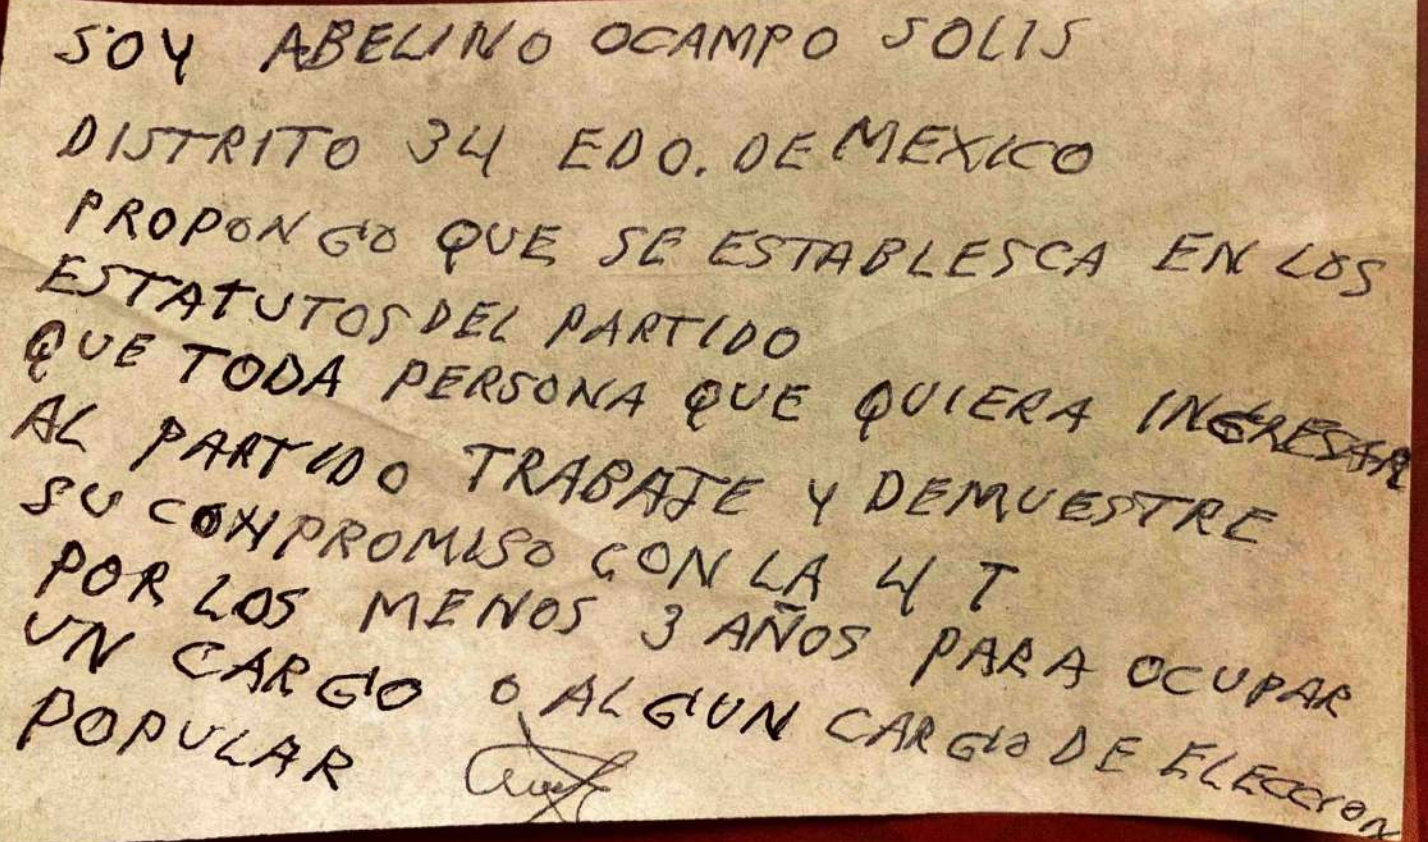 SOY ABELINO OCAMPO SOLIS
DISTRITO 34 EDO. DE MEXICO
PROPONGO QUE SE ESTABLESCA EN LOS
ESTATUTOS DEL PARTIDO
QUE TODA PERSONA QUE QUIERA INGRESAR
AL PARTIDO TRABAJE Y DEMUESTRE
SU COMPROMISO CON LA 4 T
POR LOS MENOS 3 AÑOS PARA OCUPAR
UN CARGO O ALGUN CARGO DE ELECCION
POPULAR